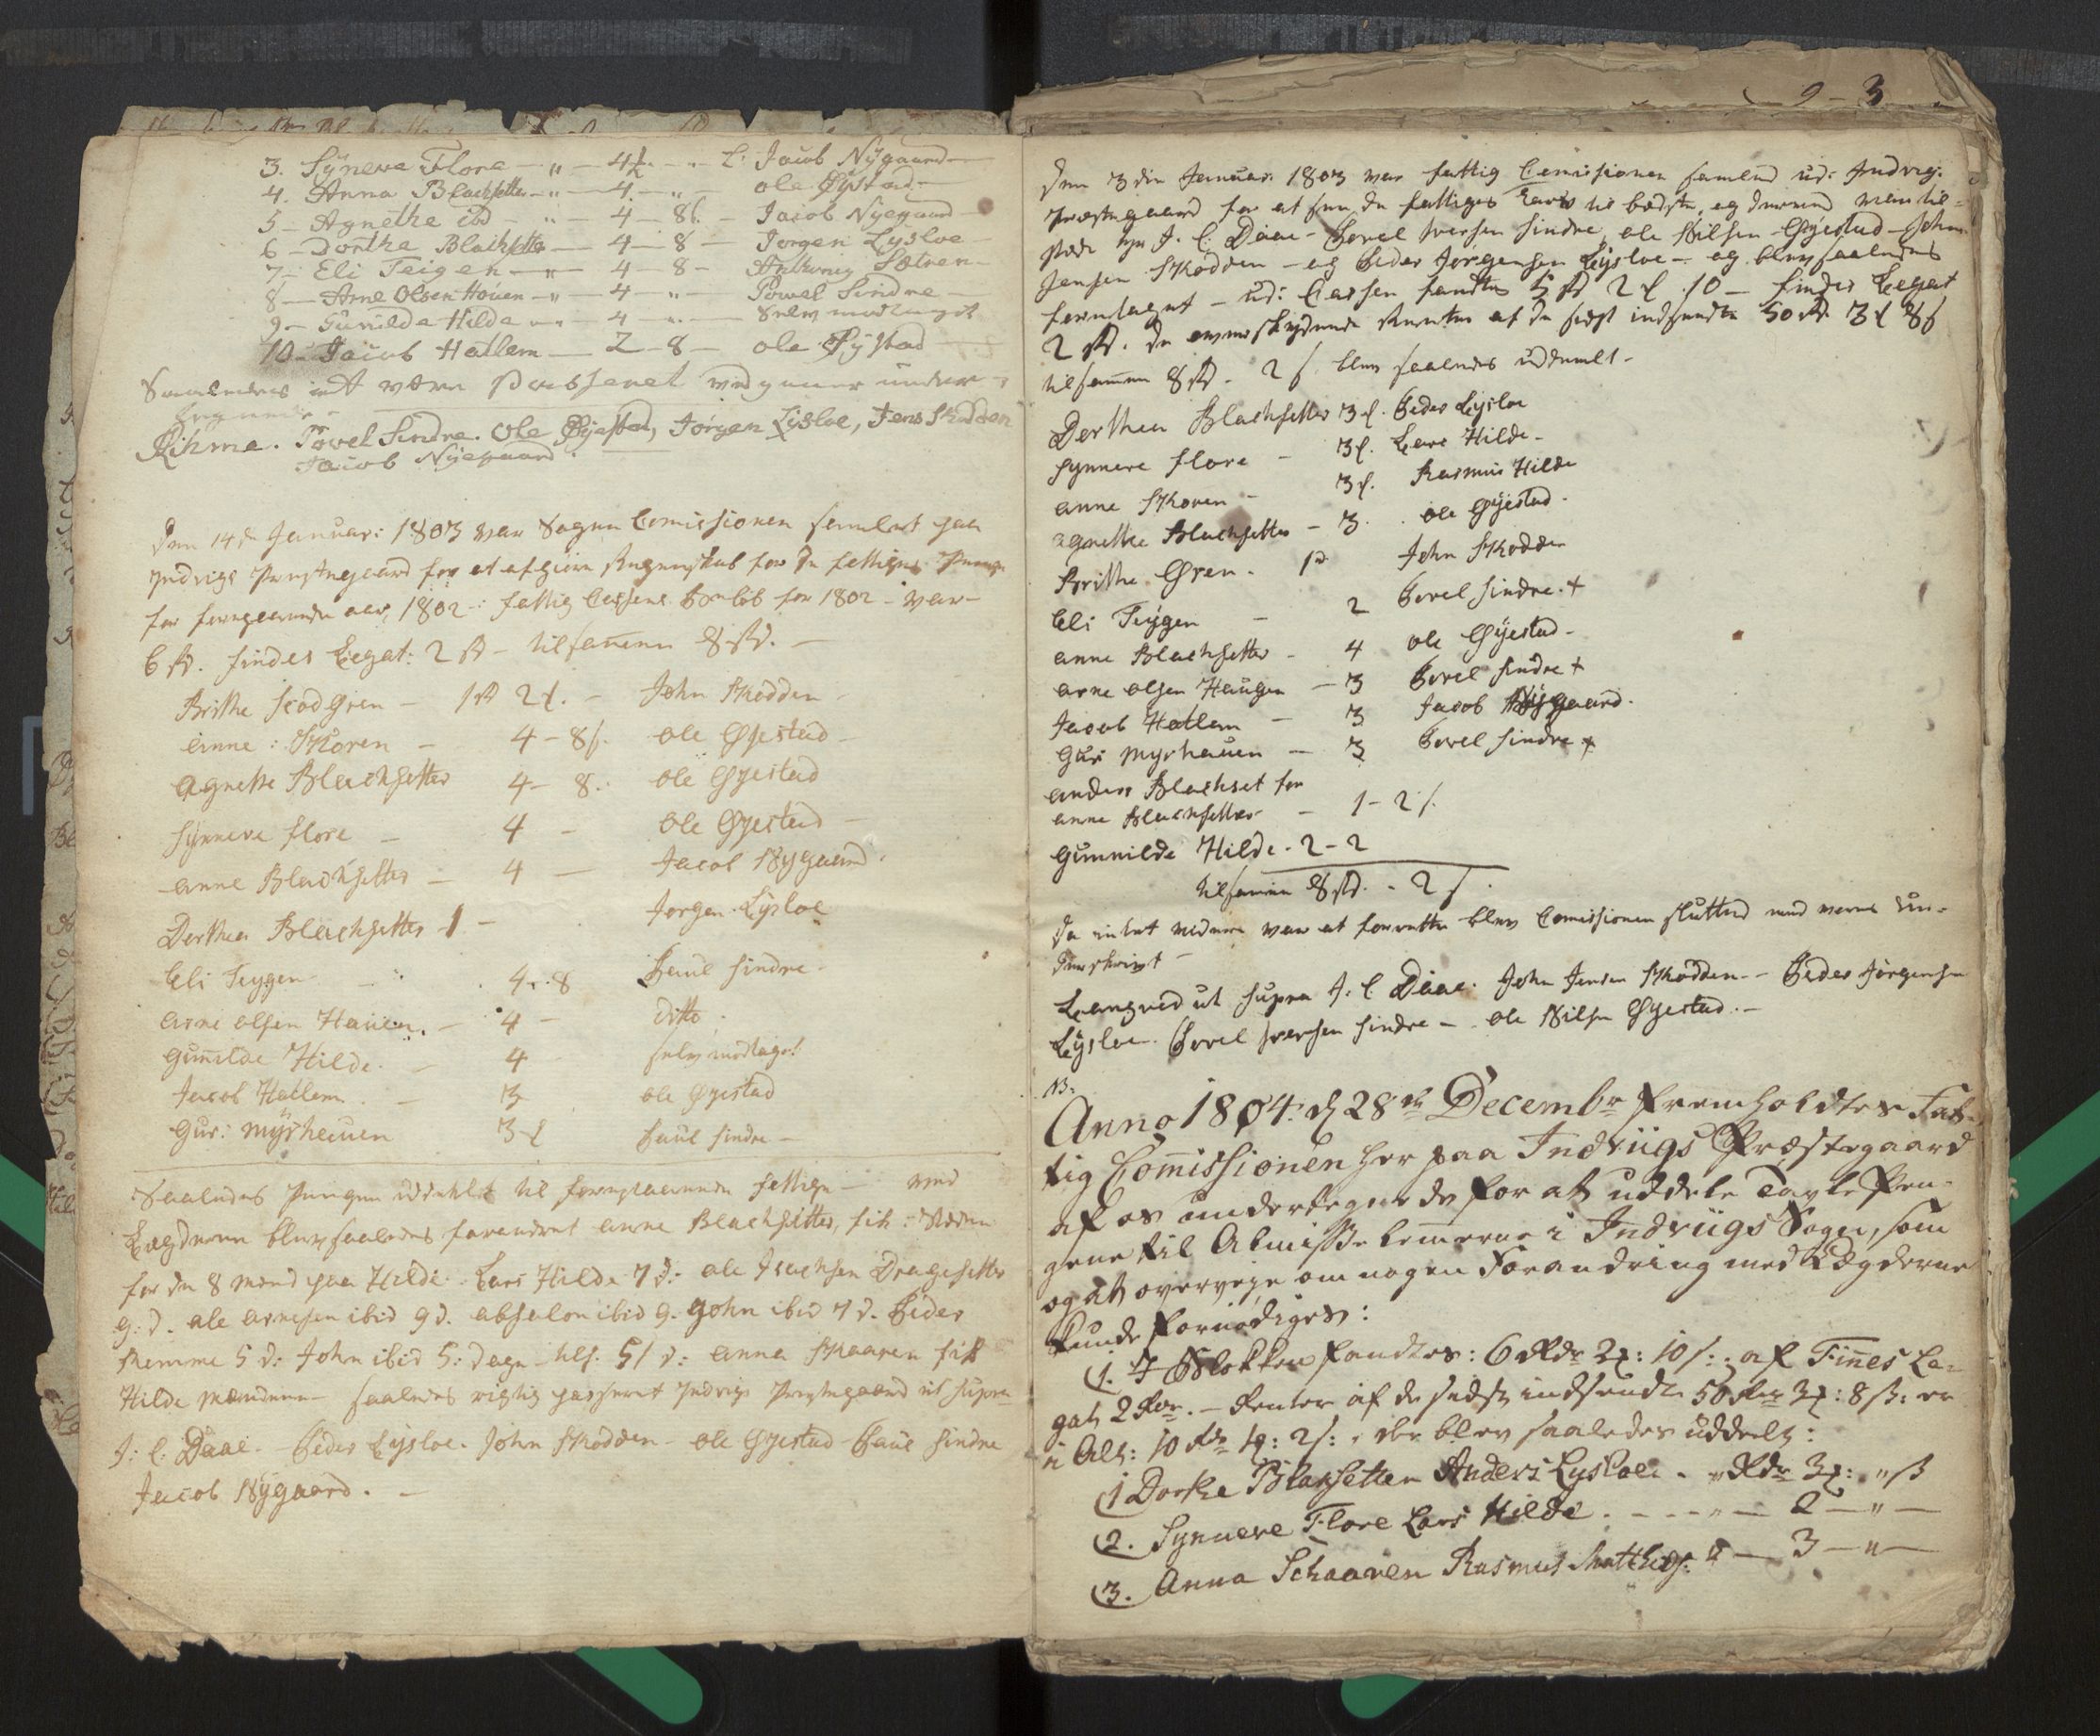 3. Synneve Flore — " — 4 — " — L: Jacob Nygaard —
4. Anna Blachsetter — " — 4. — " — ole Øystad —
5 — Agnethe ibd — " — 4 — 8 s. — Jacob Nyegaard —
6 — Dorthe Blachsetter — 4 — 8 — Jørgen Lysloe
7 — Eli Teigen — " — 4 — 8 — Anthonig Sætren —
8 — Arne Olsen Houen — " — 4 — " — Powel Sindre —
9 — Gunilda Hilde — " — 4 — " — Selv modtaget
10 — Jacob Hatlem — 2 — 8 — ole Øystad
Saaledes at være Passeret vidner under-
tegnede —
Rihme. Powel Sindre. Ole Øyestad, Jørgen Lisloe, Jens Skodden
Jacob Nyegaard.
Den 14de Januar: 1803 var Sogne Comissionen samlet paa
Indvigs Præstegaard for at afgiøre Regenskab for de fattiges Penge
for foregaaende aar, 1802 — fattig Cassens Beløb for 1802 — var —
6 rd. findes Legat: 2 rd — tilsamen 8 rd. —
Brithe Gren — 1 rd 2 . — John Skodden —
anne: Skoren — 4 — 8 s. ole Øyestad —
Agnethe Blachsetter 4 — 8. ole Øyestad
Synneve flore — 4 — ole Øyestad —
anne Blachsetter — 4 — Jacob Nygaard.
Derthea Blachsetter 1 — Jørgen Lysloe
Eli Teygen — 4 — 8 Paul Sindre —
arne olsen Hauen. — 4 — ditto.
Gunnilde Hilde. — 4 selv modtaget
Jacob Hatlem. — 3 ole Øyestad
Guri Myrhauen 3 Paul Sindre —
Saaledes Pengene uddeelt til foregaaende fattige — med
Legderne blev saaledes forandret anne Blachsetter, fik
for de 8 mænd paa Hilde. Lars Hilde 7 d: ole Isachsen Dragesetter
9: d. ole arnesen ibid 9 d. absalon ibid 9. John ibid 7 d. Peder
Remme 5 d: John ibid 5: dage — 51 d: anna Skaaren fik
Hilde Mændene — saaledes rigtig passeret Indvigs Præstegaard ut supra
J: C: Daae. — Peder Lysloe. John Skodden — ole Øyestad — Paul Sindre
Jacob Nygaard. —
9 — 3
Den 3die Januar 1803 var fattig Comissionen samled udi Indvig
Præstegaard for at see de fattiges Tarv til bedste, og derved var til-
stede hr J. C. Daae — Povel Iversen Sindre, ole Nilsen Øyestad — John
Jensen Skodden — og Peder Jørgensen Lysloe — og blev saaledes
foretaget — udi Cassen fandtes 5 rd 2 10 — findes Legat
2 rd. de overskydende Renter af de sidst indsendte 50 rd. 3 8 s
tilsamen 8 rd. 2 s. blev saaledes uddeelt —
Derthea Blachsetter 3 . Peder Lysloe
Synneve flore — 3 . Lars Hilde —
anne Skoren — 3 . Rasmus Hilde
agnethe Blachsetter — 3 . ole Øyestad.
Brithe Gren. 1 rd John Skodden
Eli Teygen — 2 Povel Sindre. +
anne Blachsetter — 4 ole Øyestad —
arne olsen Haugen — 3 Povel Sindre +
Jacob Hatlem — 3 Jacob Nygaard.
Guri Myrhauen — 3 Povel Sindre +
anders Blachset for
anne Blachsetter — 1 — 2 s.
Gunnilde Hilde. 2 — 2
tilsamen 8 rd. — 2 s.
Da intet videre var at forrette blev Comissionen sluttet med vores un-
derskrivt —
Leegvid ut supra J. C. Daae. John Jensen Skodden — Peder Jørgensen
Lysloe. Povel Iversen Sindre — ole Nilsen Øyestad. —
Anno 1804. d 28de Decembr fremholdtes Fat-
tig Comissionen her paa Indviigs Præstegaard
af os undertegnede for at uddele Tavle Pen-
gene til Almisse lemmerne i Indviigs Sogn, som
og at overveye om nogen Forandring med Legderne
kunde fornødiges:
(1. I Blokken fandtes: 6 Rdr 2 : 10 s: af Finnes Le-
gat 2 Rdr. — Renter af de sidst indsendte 50 Rdr 3 : 8 s: er
i Alt: 10 Rdr : 2 s: der blev saaledes uddeelt:
(1 Dorthe Blaksetter Anders Lysloe. " Rdr 3 : " s
(2. Synneve Flore Lars Hilde. — — " — 2 — " —
(3. Anna Schaaren Rasmus Matthis: " — 3 — " —